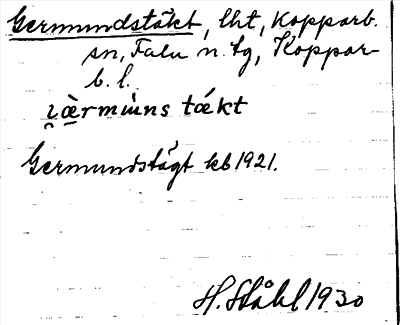 Germundstäkt, lht, Kopparb.
sn, Falu n. tg, Koppar-
b. l.
ɩ̯æ̀rmùns tǽkt
Germundstägt kb 1921.
H. Ståhl 1930